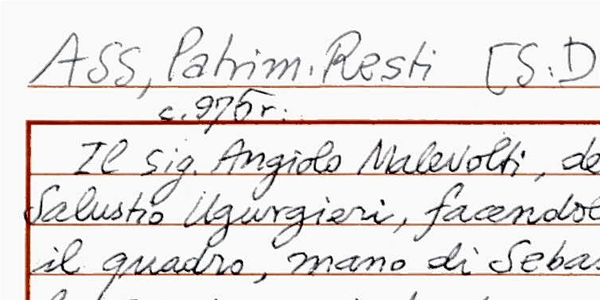 ASS, Patrim. Resti [S. D
c. 975 r.
Il sig. Angiolo Malevolti, de
Salustio Ugurgieri, facendol
il quadro, mano di Sebas